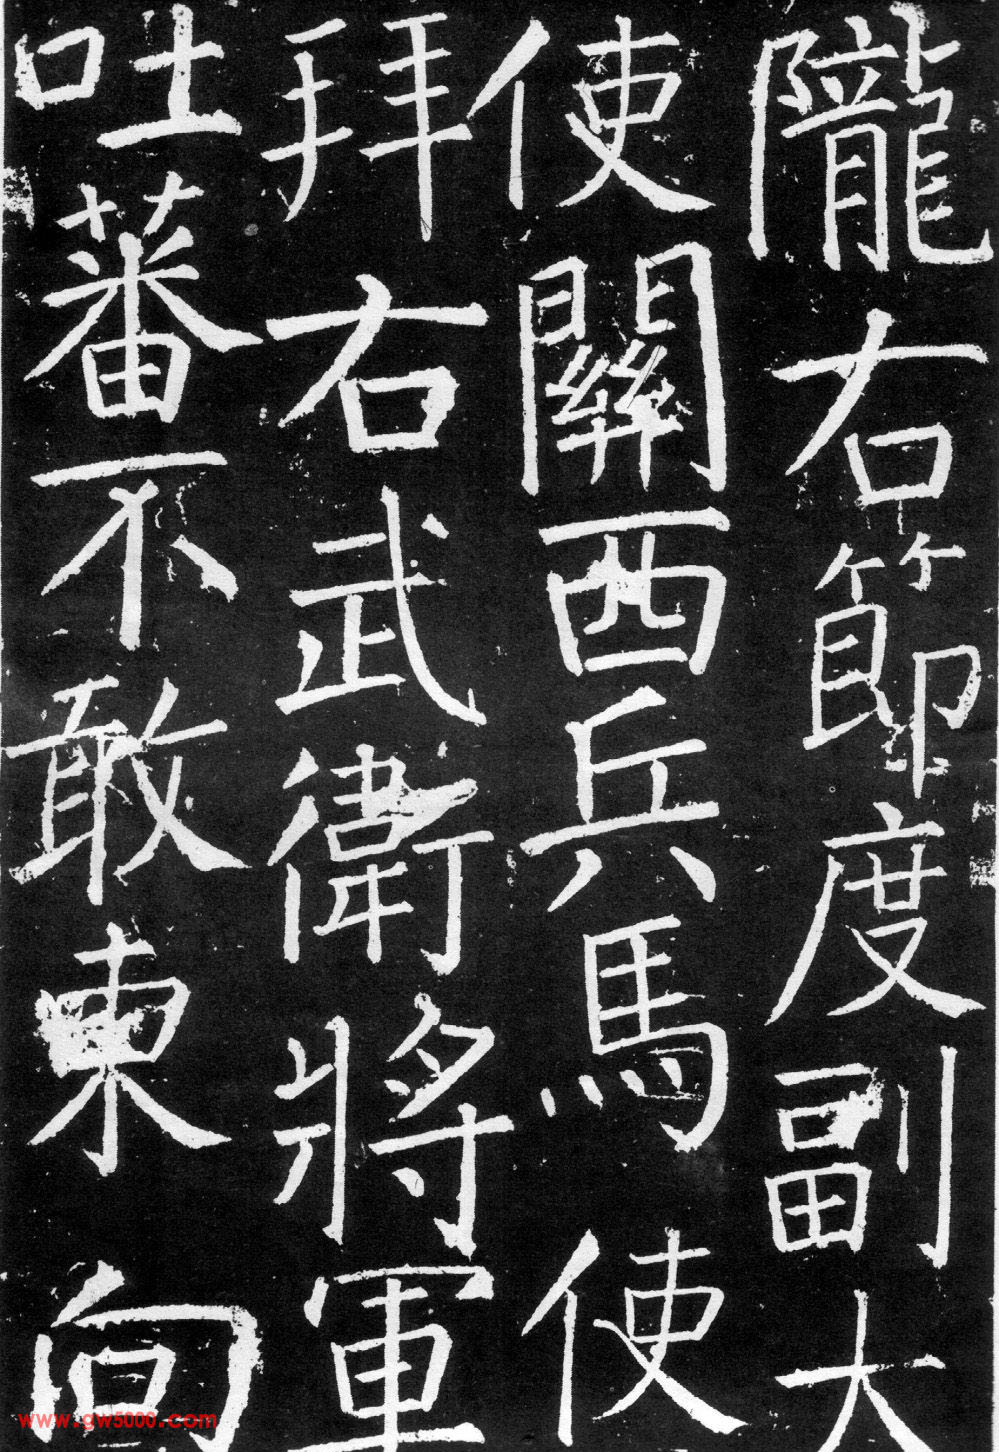 隴右節度副大
使關西兵馬使
拜右武衛將軍
吐蕃不敢東向
www.gw5000.com